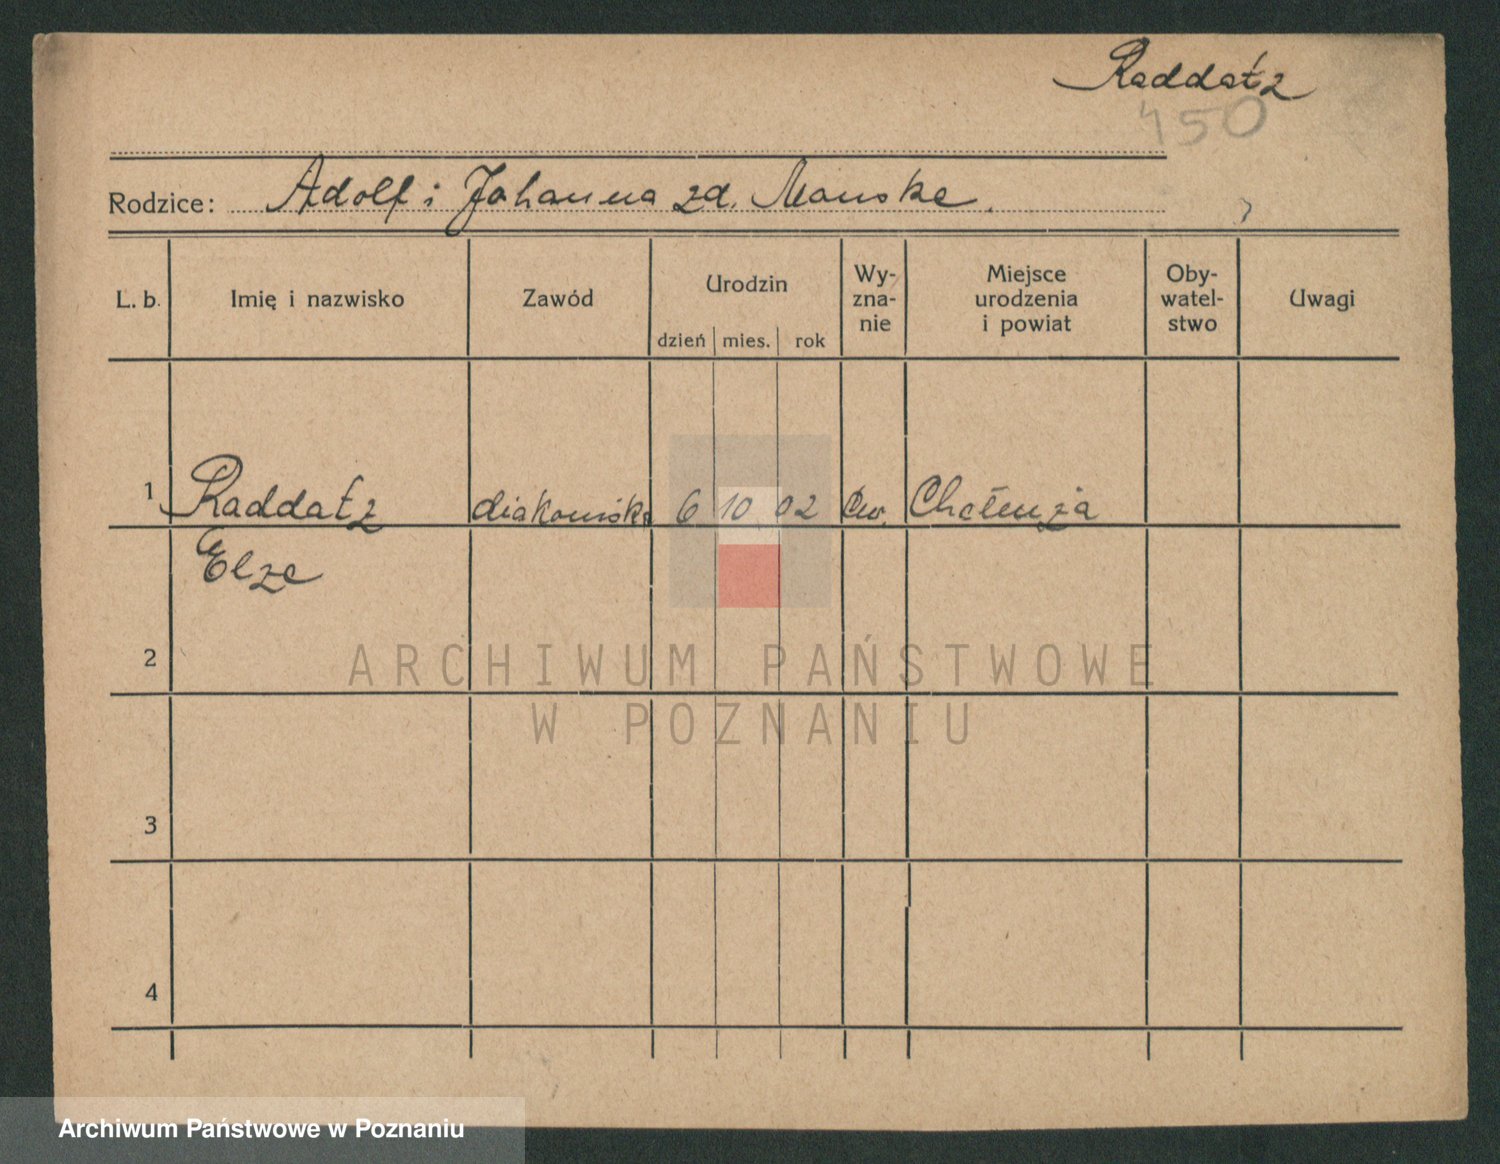 Raddatz
450
Rodzice: Adolf i Johanna zd. Manske.
L. b. Imię i nazwisko Zawód Urodzin dzień mies. rok Wy-zna-nie Miejsce urodzenia i powiat Oby-watel-stwo Uwagi
1 Raddatz diakoniska 6 10 02 Ew. Chełmża
Elze
2
3
4
ARCHIWUM PAŃSTWOWE
W POZNANIU
Archiwum Państwowe w Poznaniu